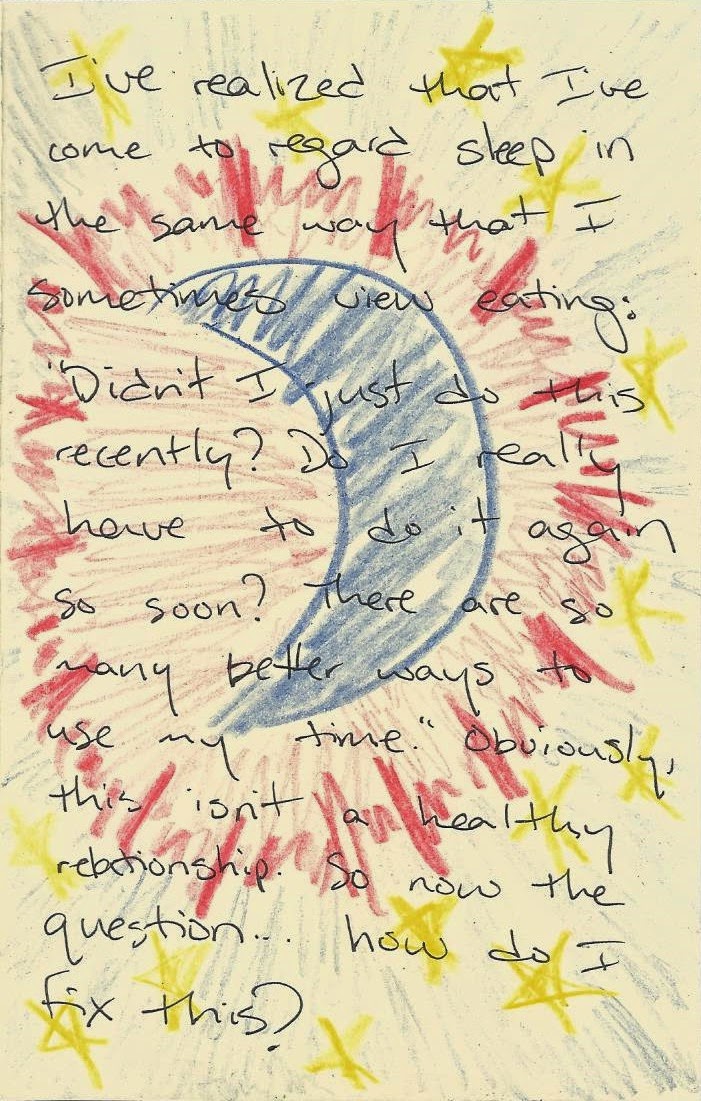 I've realized that I've
come to regard sleep in
the same way that I
sometimes view eating:
"Didn't I just do this
recently? Do I really
have to do it again
so soon? There are so
many better ways to
use my time." Obviously,
this isn't a healthy
relationship. So now the
question... how do I
fix this?